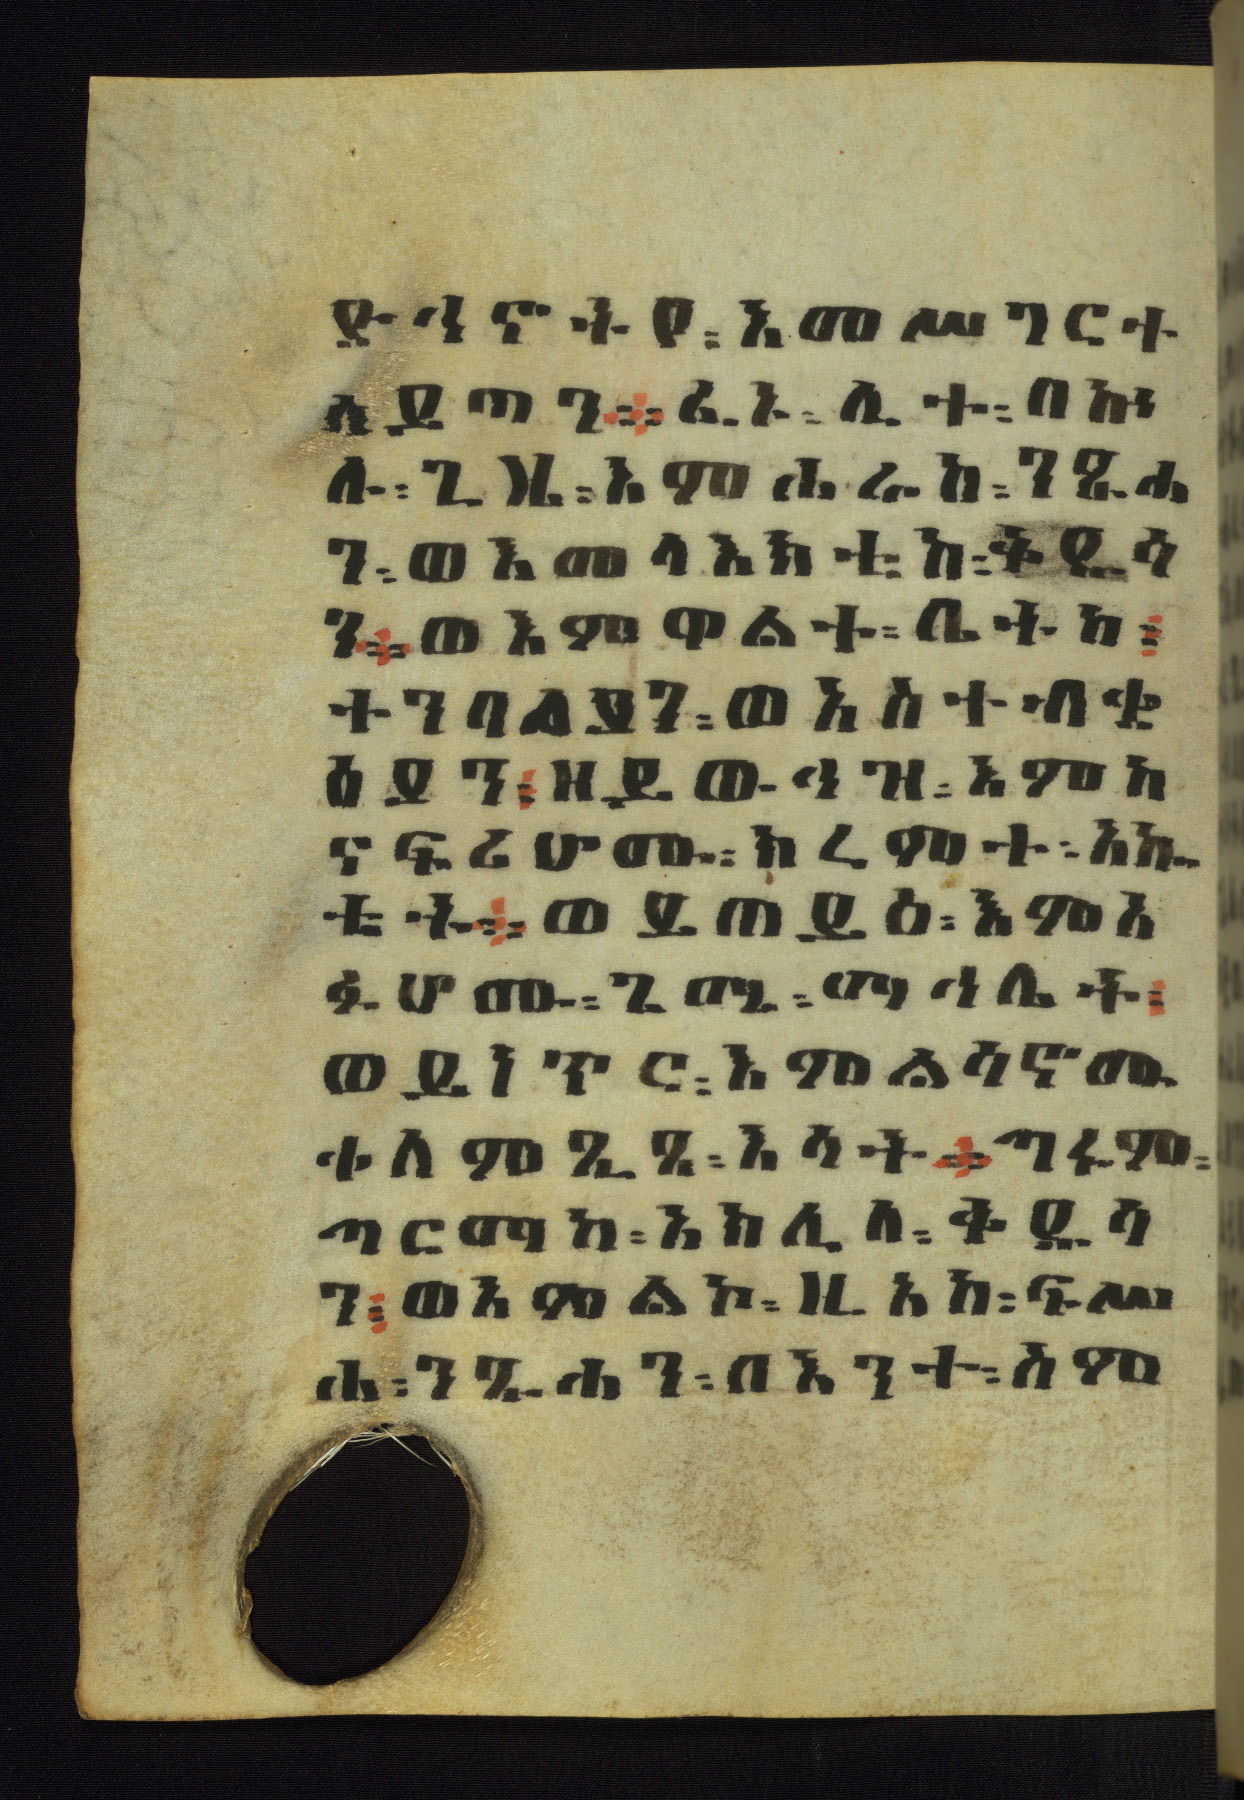 ድኅኖትየ፡እመሥገርተ
ሰይጣን። ፈኑ፡ሊተ፡በኵ
ሉ፡ጊዜ፡እምሐራከ፡ንጹሐ
ን፡ወእመላእክቲከ፡ቅዱሳ
ን። ወእምዋልተ፡ቤትከ፡
ተንባልያን፡ወአስተብቋ
ዕያን፡ዘይውኅዝ፡እምከ
ናፍሪሆሙ፡ክረምተ፡አኰ
ቴት። ወይጠይዕ፡እምአ
ፉሆሙ፡ጊሜ፡ማኅሌት፡
ወይነጥር፡እምልሳኖሙ
ቀለምጺጺ፡እሳት። ጣፉም፡
ጣርማከ፡አክሊለ፡ቅዱሳ
ን፡ወእምልኮ፡ዚአከ፡ፍሡ
ሐ፡ንጹሐን፡በእንተ፡ስም